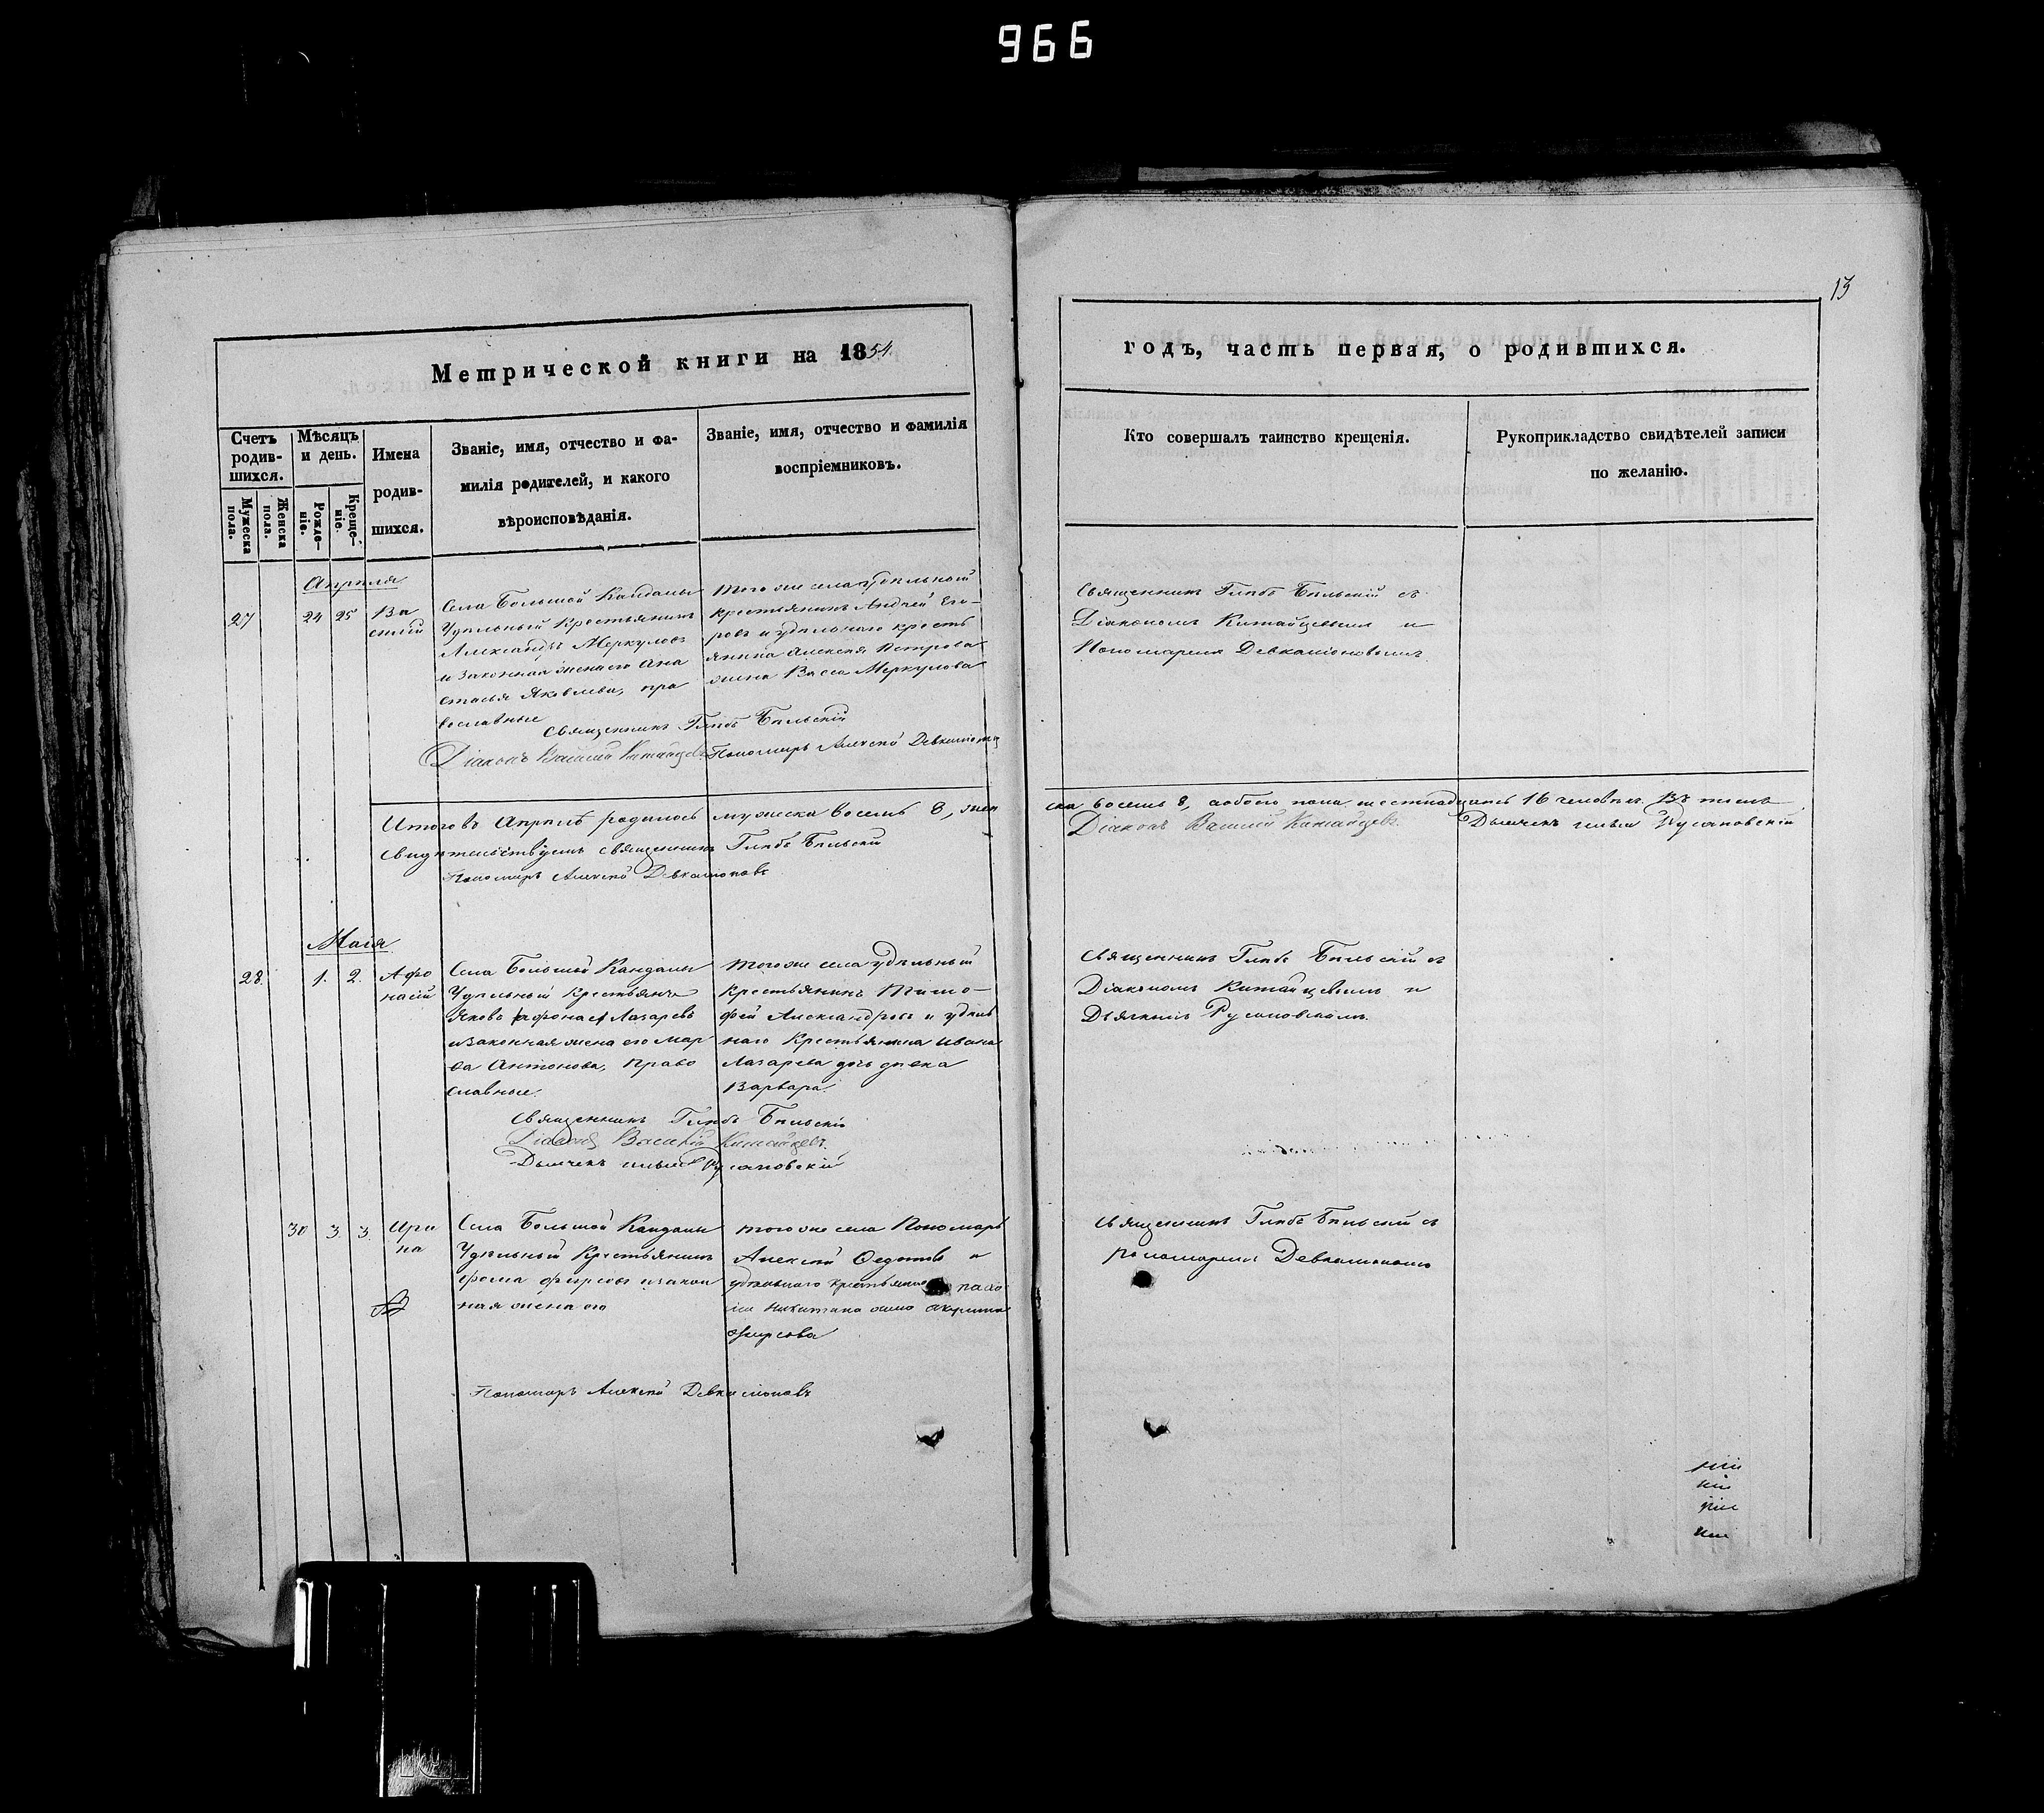 966
13
Метрической книги на 1854.
годъ, часть первая, о родившихся.
Счетъ родив-шихся.
Мѣсяцъ и день.
Имена родив-шихся.
Званіе, имя, отчество и фа-
милія родителей, и какого
вѣроисповѣданія.
Званіе, имя, отчество и фамилія
воспріемниковъ.
Кто совершалъ таинство крещенія.
Рукоприкладство свидѣтелей записи
по желанію.
Мужеска пола.
Женска пола.
Рожде-ніе.
Креще-ніе.
Апрѣля
27
24
25
Ва
силій
Села Большой Кандалы
Удѣльный Крестьянинъ
Александръ Меркуловъ
и законная жена его Ана
стасья Яковлева, пра
вославные
того же села удѣльной
крестьянинъ Андрей Его-
ровъ и удѣльнаго кресть
янина Алексея Петрова
жена Васса Меркулова
Священникъ Глѣбъ Бѣльскій съ
Діакономъ Китайцевымъ и
Пономаремъ Девкаліоновымъ
Священникъ Глѣбъ Бѣльскій
Діаконъ Василій Китайцевъ
Пономарь Алексѣй Девкаліоновъ
Итого въ Апрѣлѣ родилось мужеска восемь 8, жен
ска восемь 8, а обоего пола шестнадцать 16 человѣкъ. Въ чемъ
свидѣтельствуемъ священникъ Глѣбъ Бѣльскій
Діаконъ Василій Китайцевъ.
Дьячекъ Илья Русановскій
Пономарь Алексѣй Девкаліоновъ
Маія
28.
1.
2.
Афо
насій
Села Большой Кандалы
Удѣльный Крестьянинъ
Яковъ Лазаревъ
и законная жена его Мар
ѳа Антонова, право
славные.
того же села удѣльный
Крестьянинъ Тимо-
фей Александровъ и удѣль
наго Крестьянина Ивана
Лазарева дочь девка
Варвара
Священникъ Глѣбъ Бѣльскій съ
Діакономъ Китайцевымъ и
Дьячкомъ Русановскимъ.
Священникъ Глѣбъ Бѣльскій
Діаконъ Василій Китайцевъ.
Дьячекъ Илья Русановскій
30
3
3.
Ири
на
Села Большой Кандалы
Удѣльный Крестьянинъ
Фома Фирсовъ и закон
ная жена его
того же села Пономарь
Алексѣй Федотовъ и
удѣльнаго крестьянина
Никитина жена Акулина
Фирсова
Священникъ Глѣбъ Бѣльскій съ
пономаремъ Девкаліоновымъ
Пономарь Алексѣй Девкаліоновъ